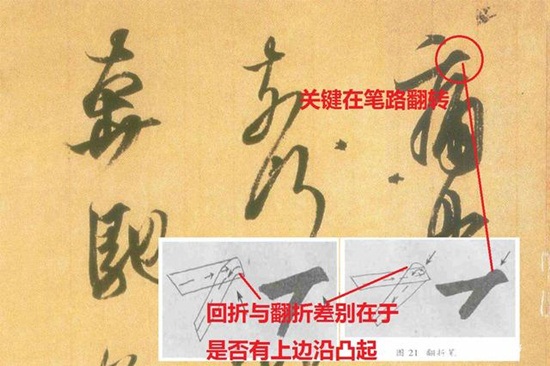 痛貫
奈何
奔馳
关键在笔路翻转
回折与翻折差别在于
是否有上边沿凸起
图 21 翻折笔